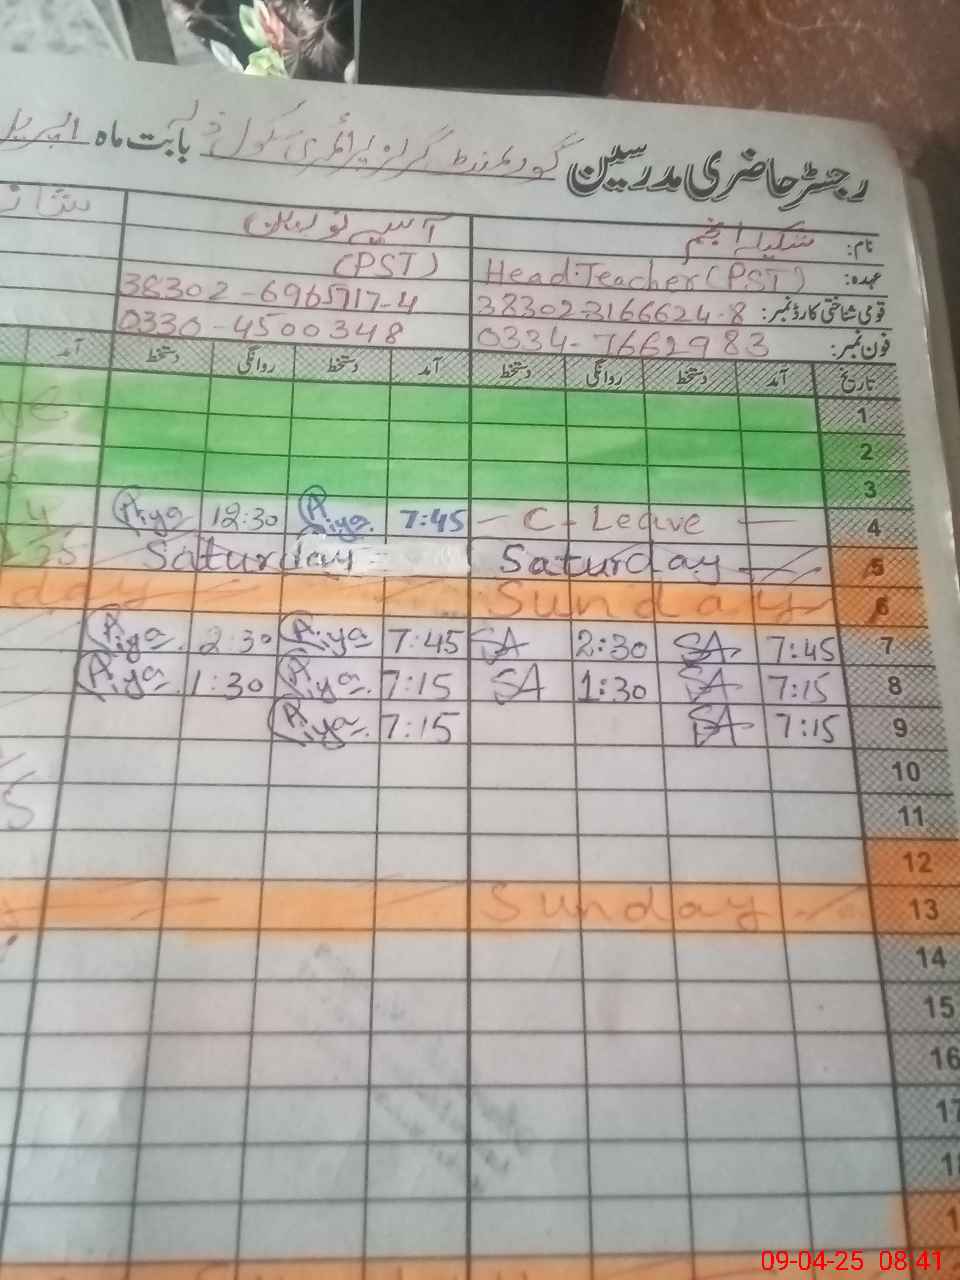 رجسٹر حاضری مدرسین گورنمنٹ گرلز پرائمری سکول بابت ماہ اپریل
نام: شکیلہ انجم آسیہ نورین
عہدہ: Head Teacher (PST) (PST)
قومی شناختی کارڈ نمبر: 38302-3166624-8 38302-6965717-4
فون نمبر: 0334-7662983 0330-4500348
تاریخ آمد دستخط روانگی دستخط آمد دستخط روانگی دستخط آمد
1
2
3
4 — C-Leave — 7:45 Aiya 12:30 Aiya
5 Saturday Saturday
6 Sunday
7 7:45 SA 2:30 SA 7:45 Aiya 2:30 Aiya
8 7:15 SA 1:30 SA 7:15 Aiya 1:30 Aiya
9 7:15 SA 7:15 Aiya
10
11
12
13 Sunday
14
15
16
17
18
09-04-25 08:41